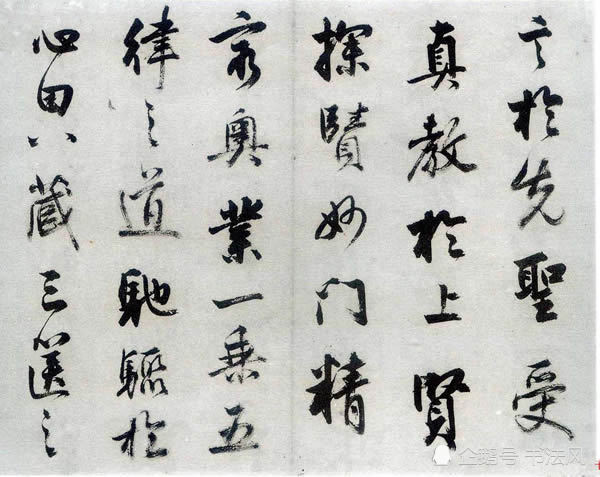 言於先聖受
真教於上賢
探賾妙门精
窮奥業一乘五
律之道馳驟於
心田八藏三篋之
企鹅号 书法风